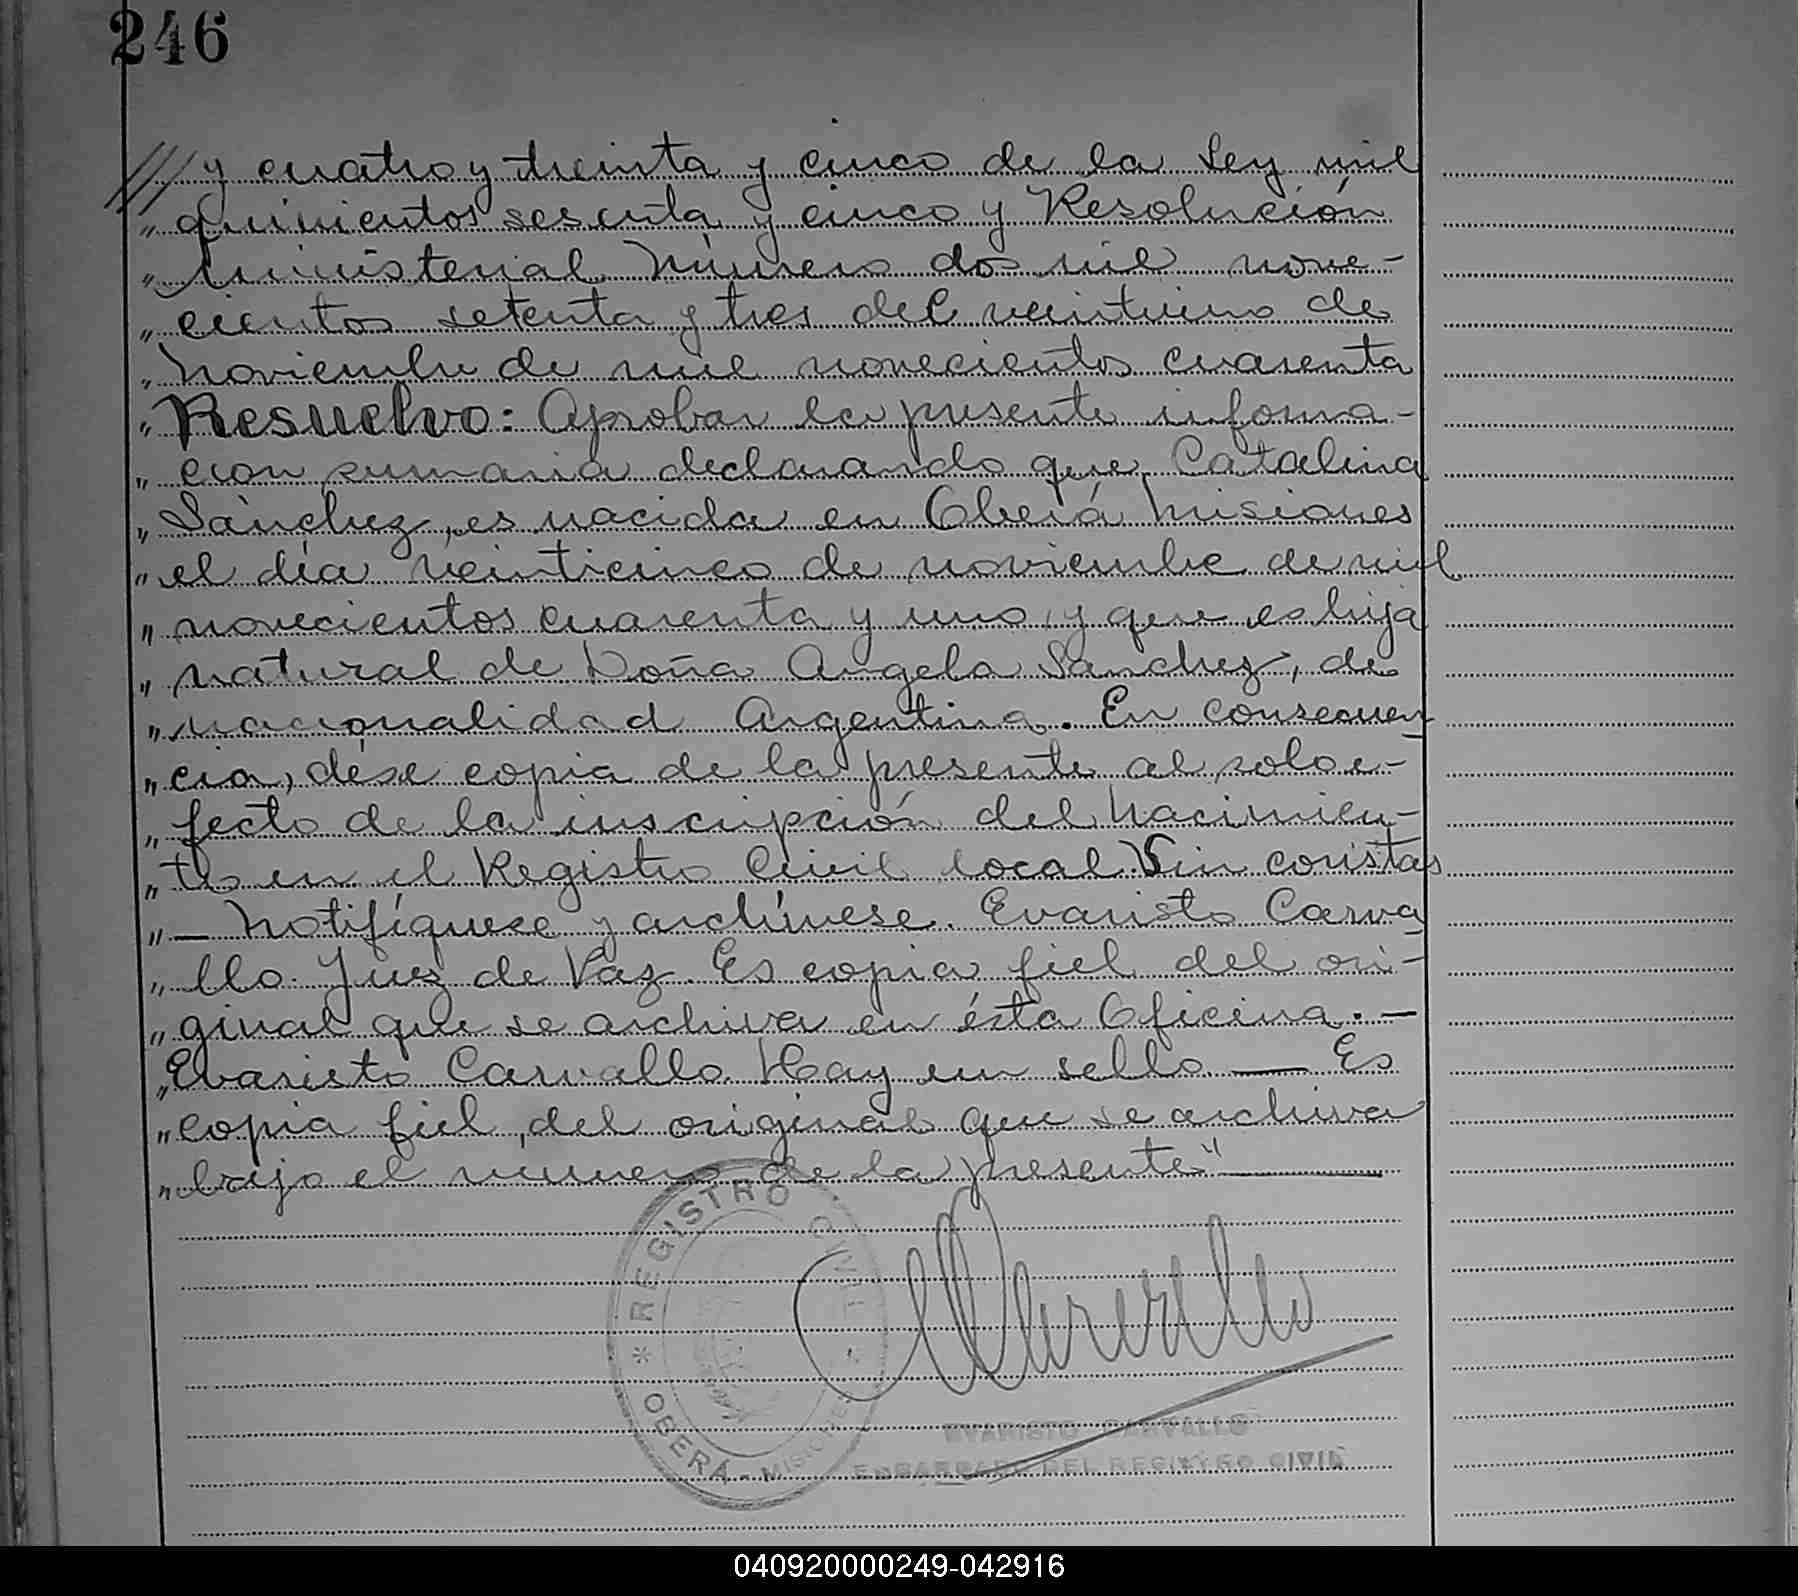 246
/// y cuatro y treinta y cinco de la Ley mil
" quinientos sesenta y cinco y Resolución
" Ministerial Número dos mil nove-
" cientos setenta y tres del veintiuno de
" Noviembre de mil novecientos cuarenta
" Resuelvo: Aprobar la presente informa-
" cion sumaria declarando que Catalina
" Sánchez, es nacida en Oberá Misiones
" el día veinticinco de noviembre de mil
" novecientos cuarenta y uno y que es hija
" natural de Doña Angela Sanchez, de
" nacionalidad Argentina. En consecuen-
" cia, dése copia de la presente al solo e-
" fecto de la inscripción del Nacimien-
" to en el Registro Civil local. Sin constas
" — Notifíquese y archívese. Evaristo Carva-
" llo. Juez de Paz. Es copia fiel del ori-
" ginal que se archiva en ésta Oficina. —
" Evaristo Carvallo. Hay un sello — Es
" copia fiel, del original que se archiva
" bajo el número de la presente" —
REGISTRO CIVIL
* OBERÁ - MISIONES *
EVARISTO CARVALLO
ENCARGADO DEL REGISTRO CIVIL
040920000249-042916